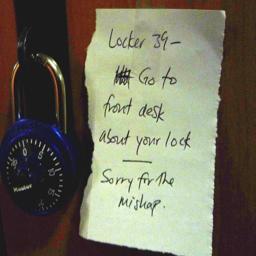 Locker 39-
Go to
front desk
about your lock
Sorry for the
mishap.
Master